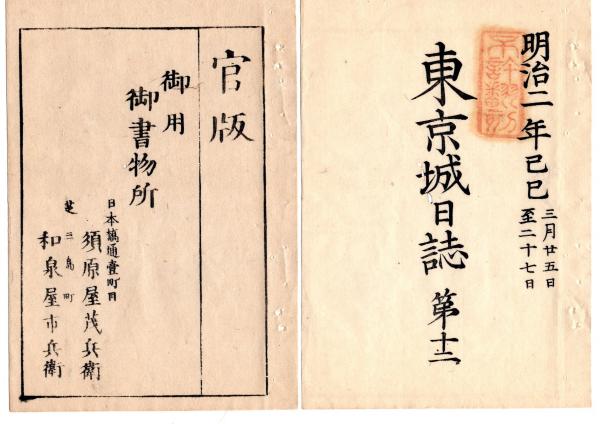 明治二年己巳
三月廿五日
至二十七日
東京城日誌 第十二
官版
御用
御書物所
日本橋通壹町目
須原屋茂兵衛
芝三島町
和泉屋市兵衛